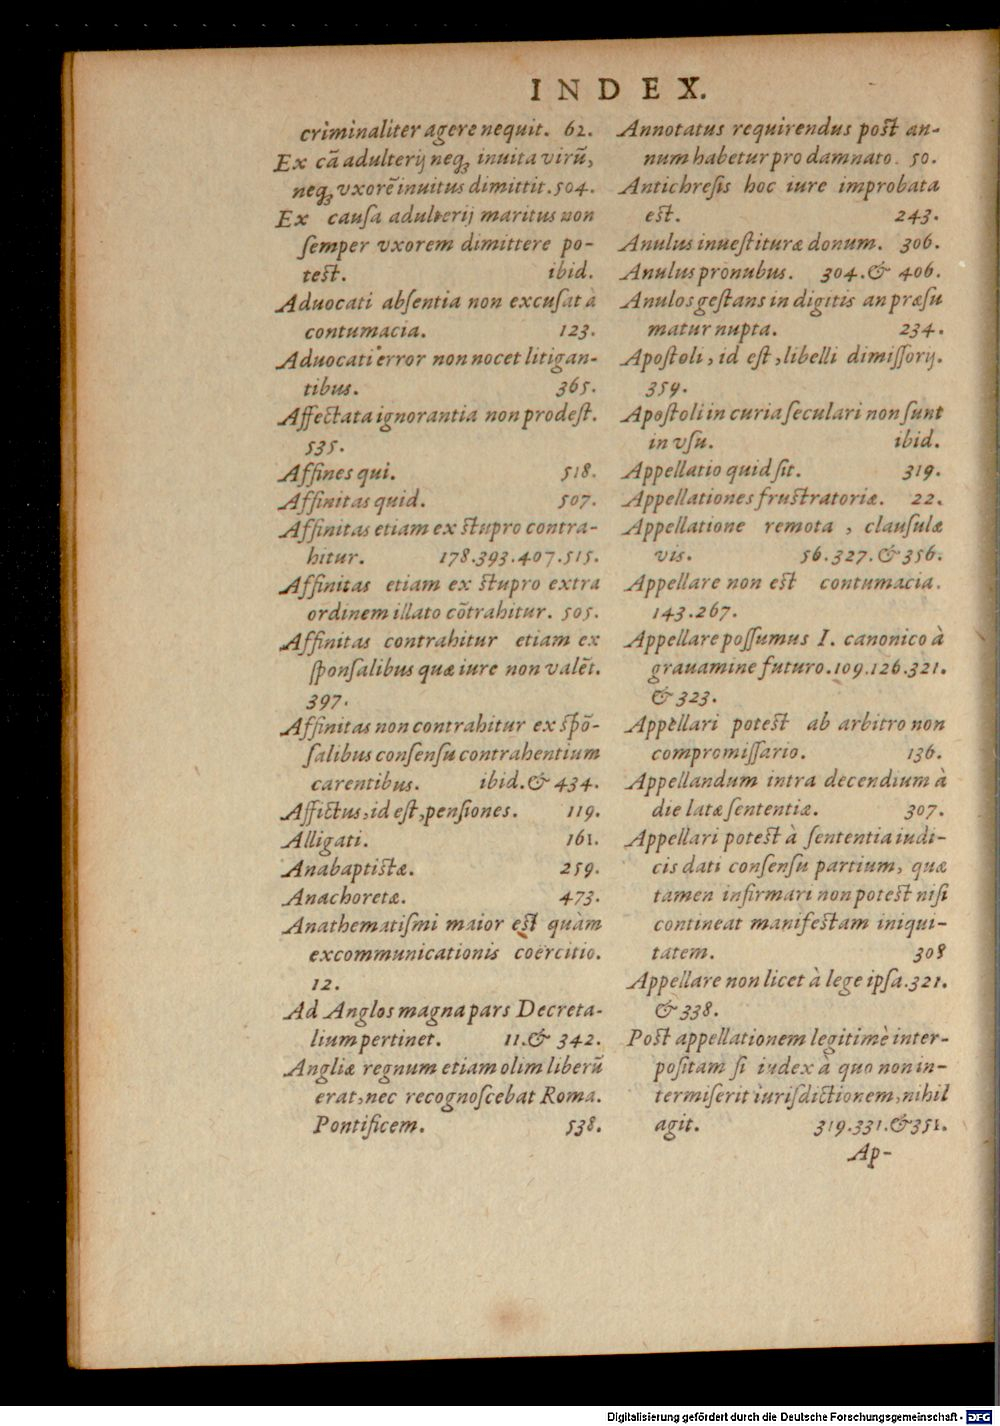 INDEX.
criminaliter agere nequit. 62.
Ex cã adulterij neqꝫ inuita virũ,
neqꝫ vxorẽ inuitus dimittit. 504.
Ex causa adulterij maritus non
semper vxorem dimittere po-
test. ibid.
Aduocati absentia non excusat à
contumacia. 123.
Aduocati error non nocet litigan-
tibus. 365.
Affectata ignorantia non prodest.
535.
Affines qui. 518.
Affinitas quid. 507.
Affinitas etiam ex stupro contra-
hitur. 178.393.407.515.
Affinitas etiam ex stupro extra
ordinem illato cõtrahitur. 505.
Affinitas contrahitur etiam ex
sponsalibus quæ iure non valẽt.
397.
Affinitas non contrahitur ex spõ-
salibus consensu contrahentium
carentibus. ibid. & 434.
Affictus, id est, pensiones. 119.
Alligati. 161.
Anabaptistæ. 259.
Anachoretæ. 473.
Anathematismi maior est quàm
excommunicationis coërcitio.
12.
Ad Anglos magna pars Decreta-
lium pertinet. 11. & 342.
Angliæ regnum etiam olim liberũ
erat, nec recognoscebat Roma.
Pontificem. 538.
Annotatus requirendus post an-
num habetur pro damnato. 50.
Antichresis hoc iure improbata
est. 243.
Anulus inuestituræ donum. 306.
Anulus pronubus. 304. & 406.
Anulos gestans in digitis an præsu
matur nupta. 234.
Apostoli, id est, libelli dimissorij.
359.
Apostoli in curia seculari non sunt
in vsu. ibid.
Appellatio quid sit. 319.
Appellationes frustratoriæ. 22.
Appellatione remota, clausulæ
vis. 56.327. & 356.
Appellare non est contumacia.
143.267.
Appellare possumus I. canonico à
grauamine futuro. 109.126.321.
& 323.
Appellari potest ab arbitro non
compromissario. 136.
Appellandum intra decendium à
die latæ sententiæ. 307.
Appellari potest à sententia iudi-
cis dati consensu partium, quæ
tamen infirmari non potest nisi
contineat manifestam iniqui-
tatem. 308
Appellare non licet à lege ipsa. 321.
& 338.
Post appellationem legitimè inter-
positam si iudex à quo non in-
termiserit iurisdictionem, nihil
agit. 319.331. & 351.
Ap-
Digitalisierung gefördert durch die Deutsche Forschungsgemeinschaft - DFG